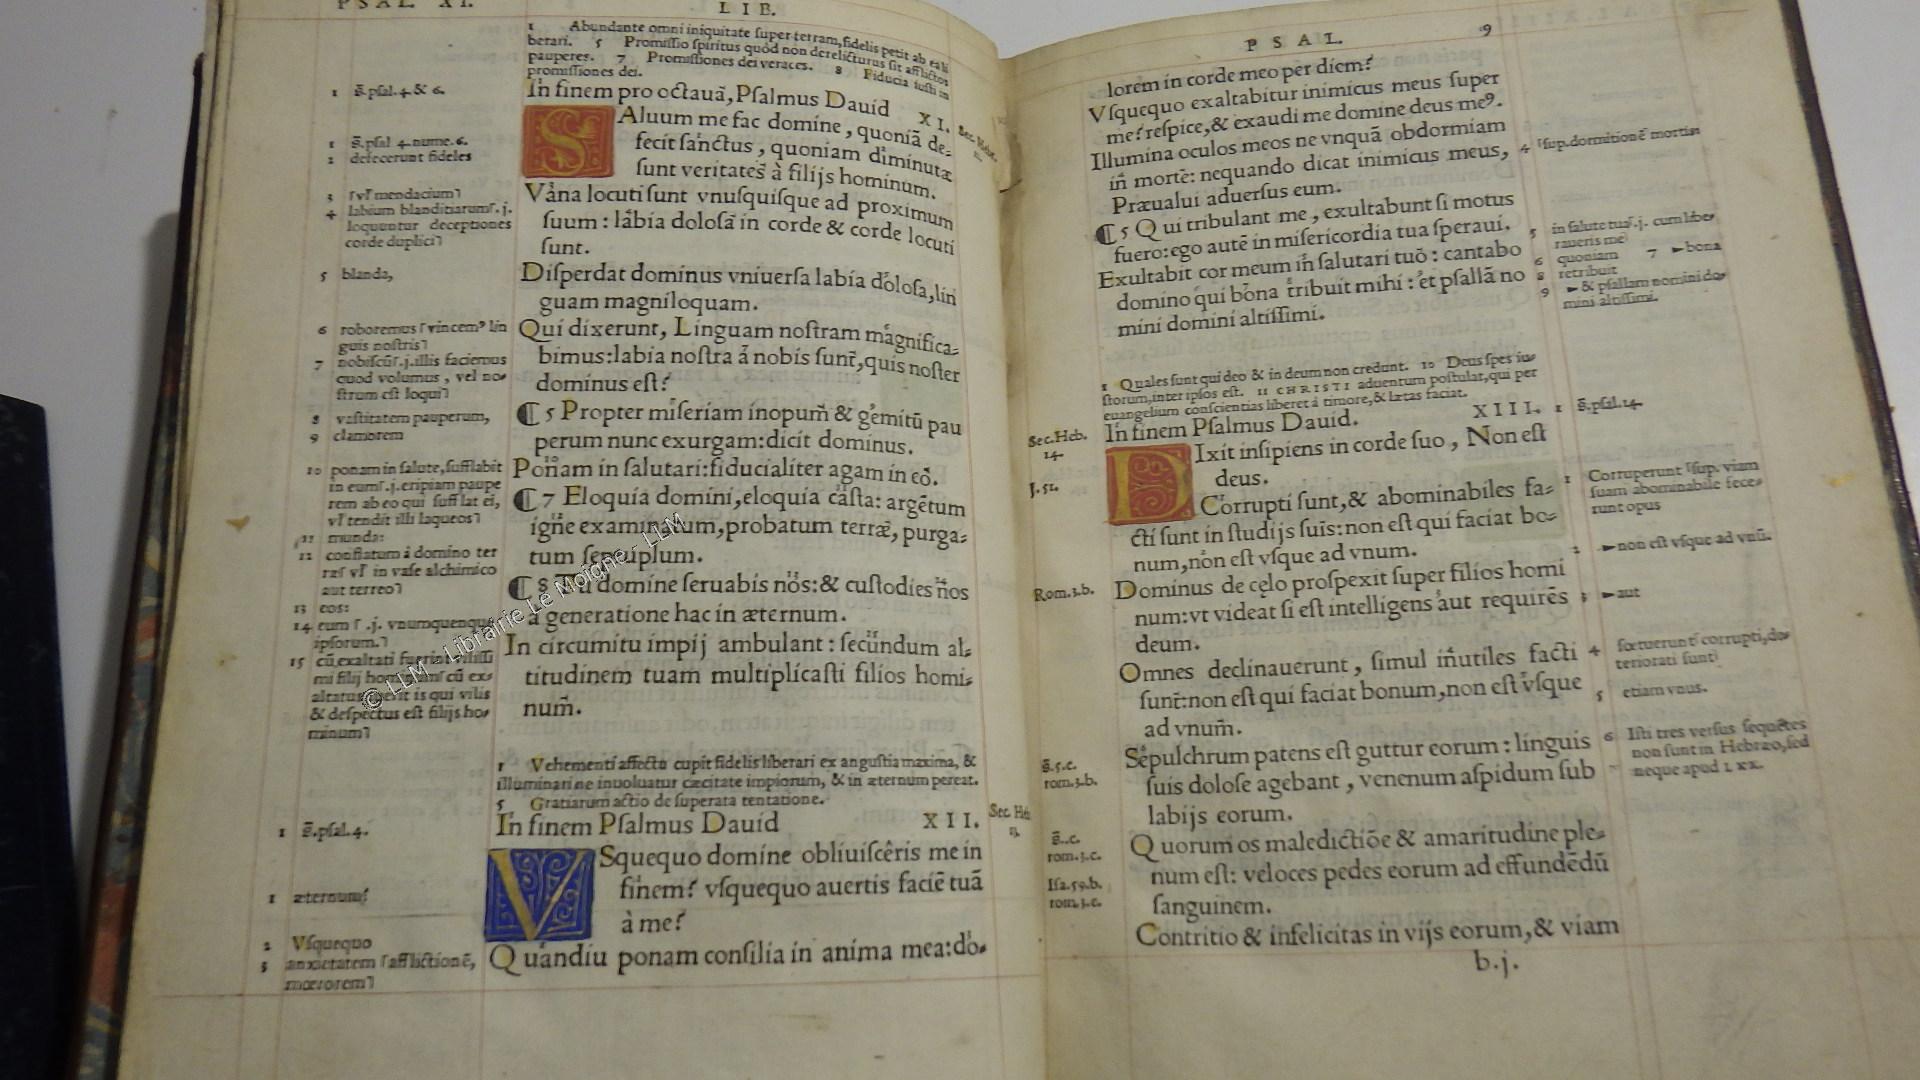 PSAL. XI.
LIB.
1 Abundante omni iniquitate super terram, fidelis petit ab ea li
berari. 5 Promissio spiritus quòd non derelicturus sit afflictos
pauperes. 7 Promissiones dei veraces. 8 Fiducia iusti in
promissiones dei.
1 s̄.psal.4 & 6.
In finem pro octauā, Psalmus Dauid XI.
Sec. Hebr.
SAluum me fac domine, quoniā de-
fecit sanctus, quoniam diminutæ
sunt veritates à filijs hominum.
Vana locuti sunt vnusquisque ad proximum
suum: labia dolosa in corde & corde locuti
sunt.
Disperdat dominus vniuersa labia dolosa, lin
guam magniloquam.
Qui dixerunt, Linguam nostram magnifica-
bimus: labia nostra à nobis sunt, quis noster
dominus est?
¶ 5 Propter miseriam inopum & gemitū pau
perum nunc exurgam: dicit dominus.
Ponam in salutari: fiducialiter agam in eo.
¶ 7 Eloquia domini, eloquia casta: argētum
igne examinatum, probatum terræ, purga-
tum septuplum.
¶ 8 Tu domine seruabis nos: & custodies nos
à generatione hac in æternum.
In circumitu impij ambulant: secundum al-
titudinem tuam multiplicasti filios homi-
num.
1 s̄.psal 4. nume. 6.
2 defecerunt fideles
3 ⌈vł mendacium⌉
4 labium blanditiarum⌈.j.
loquuntur deceptiones
corde duplici⌉
5 blanda,
6 roboremus ⌈vincemꝰ lin
guis nostris⌉
7 nobiscū⌈.j. illis faciemus
quod volumus, vel no-
strum est loqui⌉
8 vastitatem pauperum,
9 clamorem
10 ponam in salute, sufflabit
in eum⌈.j. eripiam paupe
rem ab eo qui sufflat ei,
vł tendit illi laqueos⌉
11 munda:
12 conflatum à domino ter
ræ⌈ vł in vase alchimico
aut terreo⌉
13 eos:
14 eum ⌈.j. vnumquenque
ipsorum.⌉
15 cū exaltati
mi filij cū ex-
is qui vilis
& despectus est filijs ho-
minum⌉
© LLM - Librairie Le Moigne - LLM
1 Vehementi affectu cupit fidelis liberari ex angustia maxima, &
illuminari ne inuoluatur cæcitate impiorum, & in æternum pereat.
5 Gratiarum actio de superata tentatione.
1 s̄.psal.4.
In finem Psalmus Dauid XII.
Sec. Heb
13.
VSquequo domine obliuiscêris me in
finem? vsquequo auertis faciē tuā
à me?
Quandiu ponam consilia in anima mea: do-
1 æternum?
2 Vsquequo
3 anxietatem ⌈afflictionē,
mœrorem⌉
PSAL. 9
lorem in corde meo per diem?
Vsquequo exaltabitur inimicus meus super
me? respice, & exaudi me domine deus meꝰ.
Illumina oculos meos ne vnquā obdormiam
in mortē: nequando dicat inimicus meus,
Præualui aduersus eum.
¶ 5 Qui tribulant me, exultabunt si motus
fuero: ego autē in misericordia tua speraui.
Exultabit cor meum in salutari tuo: cantabo
domino qui bona tribuit mihi: et psallā no
mini domini altissimi.
4 ⌈sup. dormitionē mortis⌉
5 in salute tua⌈.j. cum libe-
raueris me⌉
6 quoniam 7 bona
8 retribuit
9 & psallam nomini do-
mini altissimi.
1 Quales sunt qui deo & in deum non credunt. 10 Deus spes iu-
storum, inter ipsos est. 11 CHRISTI aduentum postulat, qui per
euangelium conscientias liberet à timore, & lætas faciat.
Sec. Heb.
14.
In finem Psalmus Dauid. XIII.
1 s̄.psal.14.
DIxit insipiens in corde suo, Non est
deus.
Corrupti sunt, & abominabiles fa-
cti sunt in studijs suis: non est qui faciat bo-
num, non est vsque ad vnum.
Dominus de cęlo prospexit super filios homi
num: vt videat si est intelligens aut requirēs
deum.
Omnes declinauerunt, simul inutiles facti
sunt: non est qui faciat bonum, non est vsque
ad vnum.
Sepulchrum patens est guttur eorum: linguis
suis dolose agebant, venenum aspidum sub
labijs eorum.
Quorum os maledictiōe & amaritudine ple-
num est: veloces pedes eorum ad effundēdū
sanguinem.
Contritio & infelicitas in vijs eorum, & viam
b.j.
J.52.
Rom.3.b.
s̄.5.c.
rom.3.b.
rom.3.c.
Isa.59.b.
rom.3.c.
1 Corruperunt ⌈sup. viam
suam abominabile fece-
runt opus
2 non est vsque ad vnū.
3 aut
4 fœtuerunt⌈ corrupti, de-
teriorati sunt⌉
5 etiam vnus.
6 Isti tres versus sequētes
non sunt in Hebræo, sed
neque apud LXX.